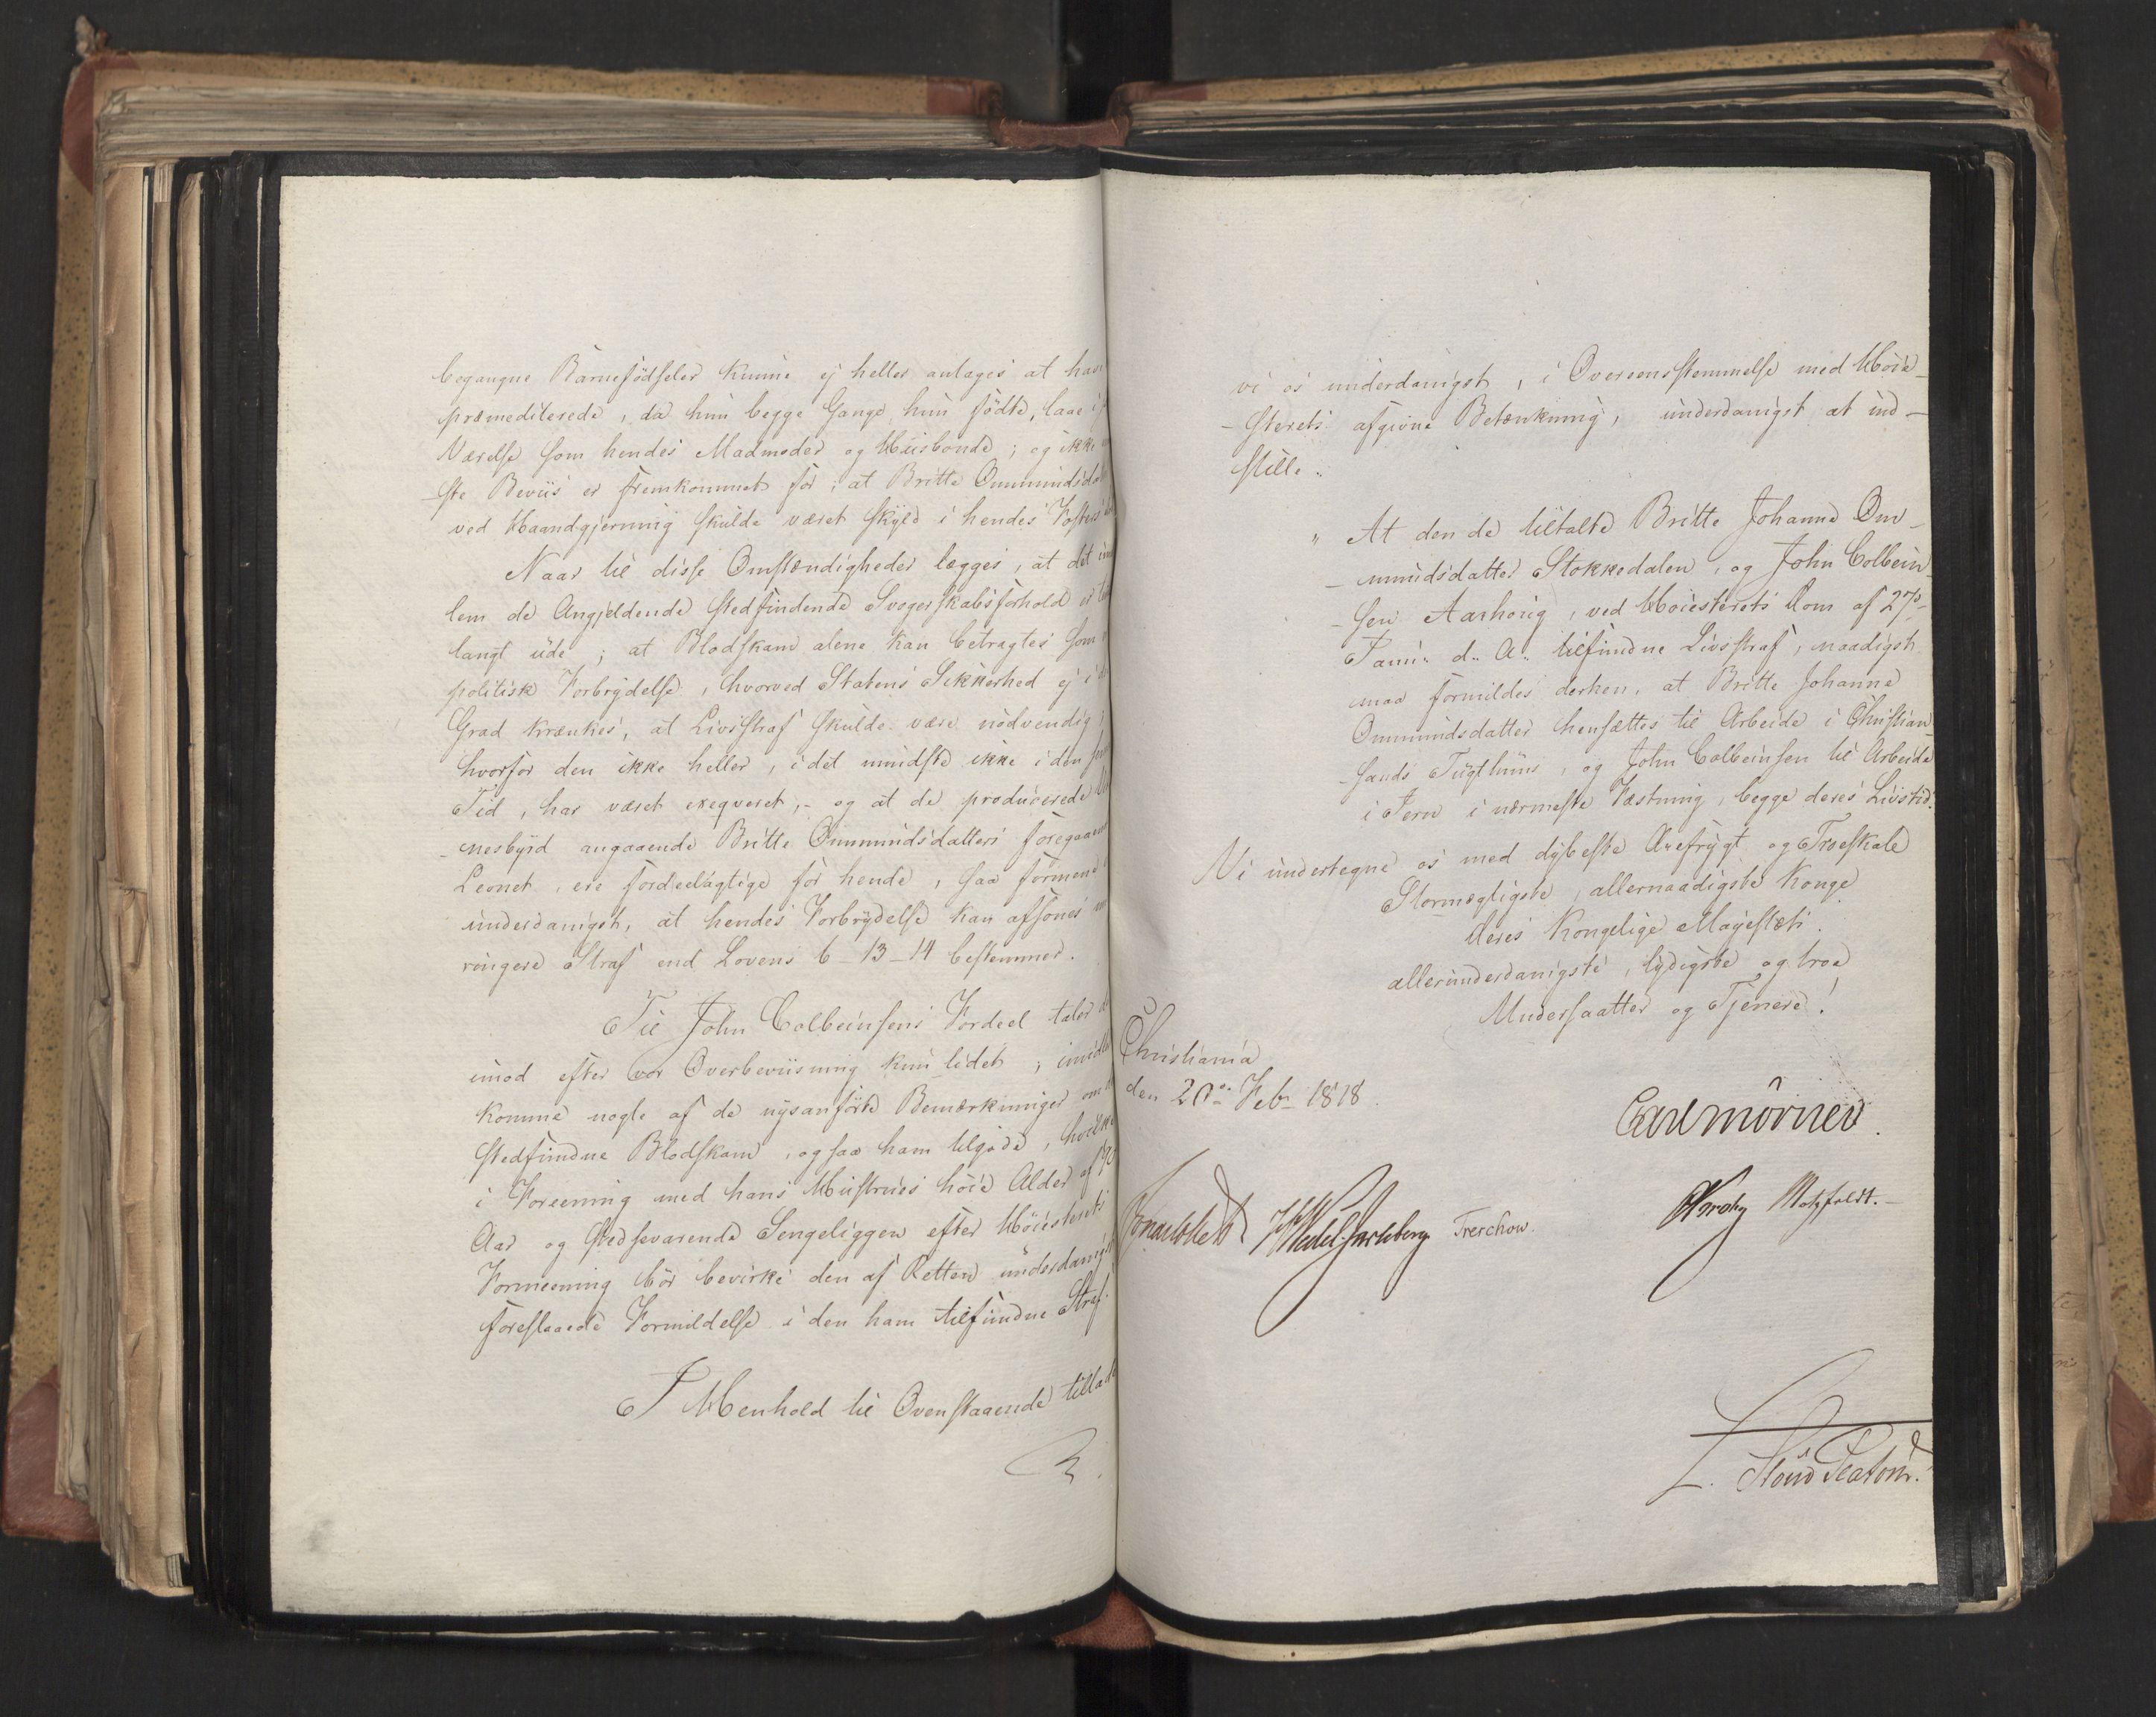 begangne Barnefödsler kunne ej heller antages at have
præmediterede, da hun begge Gange hun födte, laae i
Værelse som hendes Madmoder og Huusbonde; og ikke
ste Beviis er fremkommet for, at Britte Ommunds
ved Haandgjerning skulde været skyld i hendes Fosters
Naar til disse Omstændigheder lægges, at det
lem de Angjeldende stedfindende Svogerskabsforhold er
langt ude; at Blodskam alene kan betragtes som
politisk Forbrydelse, hvorved Statens Sikkerhed ej i
Grad krænkes, at Livsstraf skulde være nödvendig;
hvorfor den ikke heller, i det mindste ikke i den
Tid, har været exeqveret,- og at de producerede
nesbyrd angaaende Britte Ommundsdatters foregaaende
Levnet, ere fordeelagtige for hende, saa formene
underdanigst, at hendes Forbrydelse kan afsones
ringere Straf end Lovens 6-13-14 bestemmer.
Til John Colbeinsens Fordeel taler
imod efter vor Overbeviisning kun lidet;
komme nogle af de nysanførte Bemærkninger om
stedfundne Blodskam, ogsaa ham tilgode, hvilke
i Foreening med hans Hustrues höie Alder af 70
Aar og stedsevarende Sengeliggen efter Höiesterets
Formeening bör bevirke den af Retten underdanigst
foreslaaede Formildelse i den ham tilfundne Straf.
I Henhold til Ovenstaaende tillade
vi os underdanigst, i Overeensstemmelse med Höie-
-sterets afgivne Betænkning, underdanigst at ind-
stille:
" At den de tiltalte Britte Johanne Om-
-mundsdatter Stokkedalen, og John Colbein-
-sen Aarhoug, ved Höiesterets Dom af 27de
Janu: d: A: tilfundne Livsstraf, naadigst
maa formildes derhen, at Britte Johanne
Ommundsdatter hensættes til Arbeide i Christian-
-sands Tugthuus, og John Colbeinsen til Arbeide
i Jern i nærmeste Fæstning, begge deres Livstid.
Vi undertegne os med dybeste Ærefrygt og Troeskab
Stormægtigste, allernaadigste Konge
Deres Kongelige Majestæts
allerunderdanigste, lydigste og troe
Undersaatter og Tjenere!
Christiania
den 20de Febr 1818.
Carl Mörner.
Sommerhielm HWedel Jarlsberg Treschow.
Krohg Motzfeldt.
L. Stoud Platou.